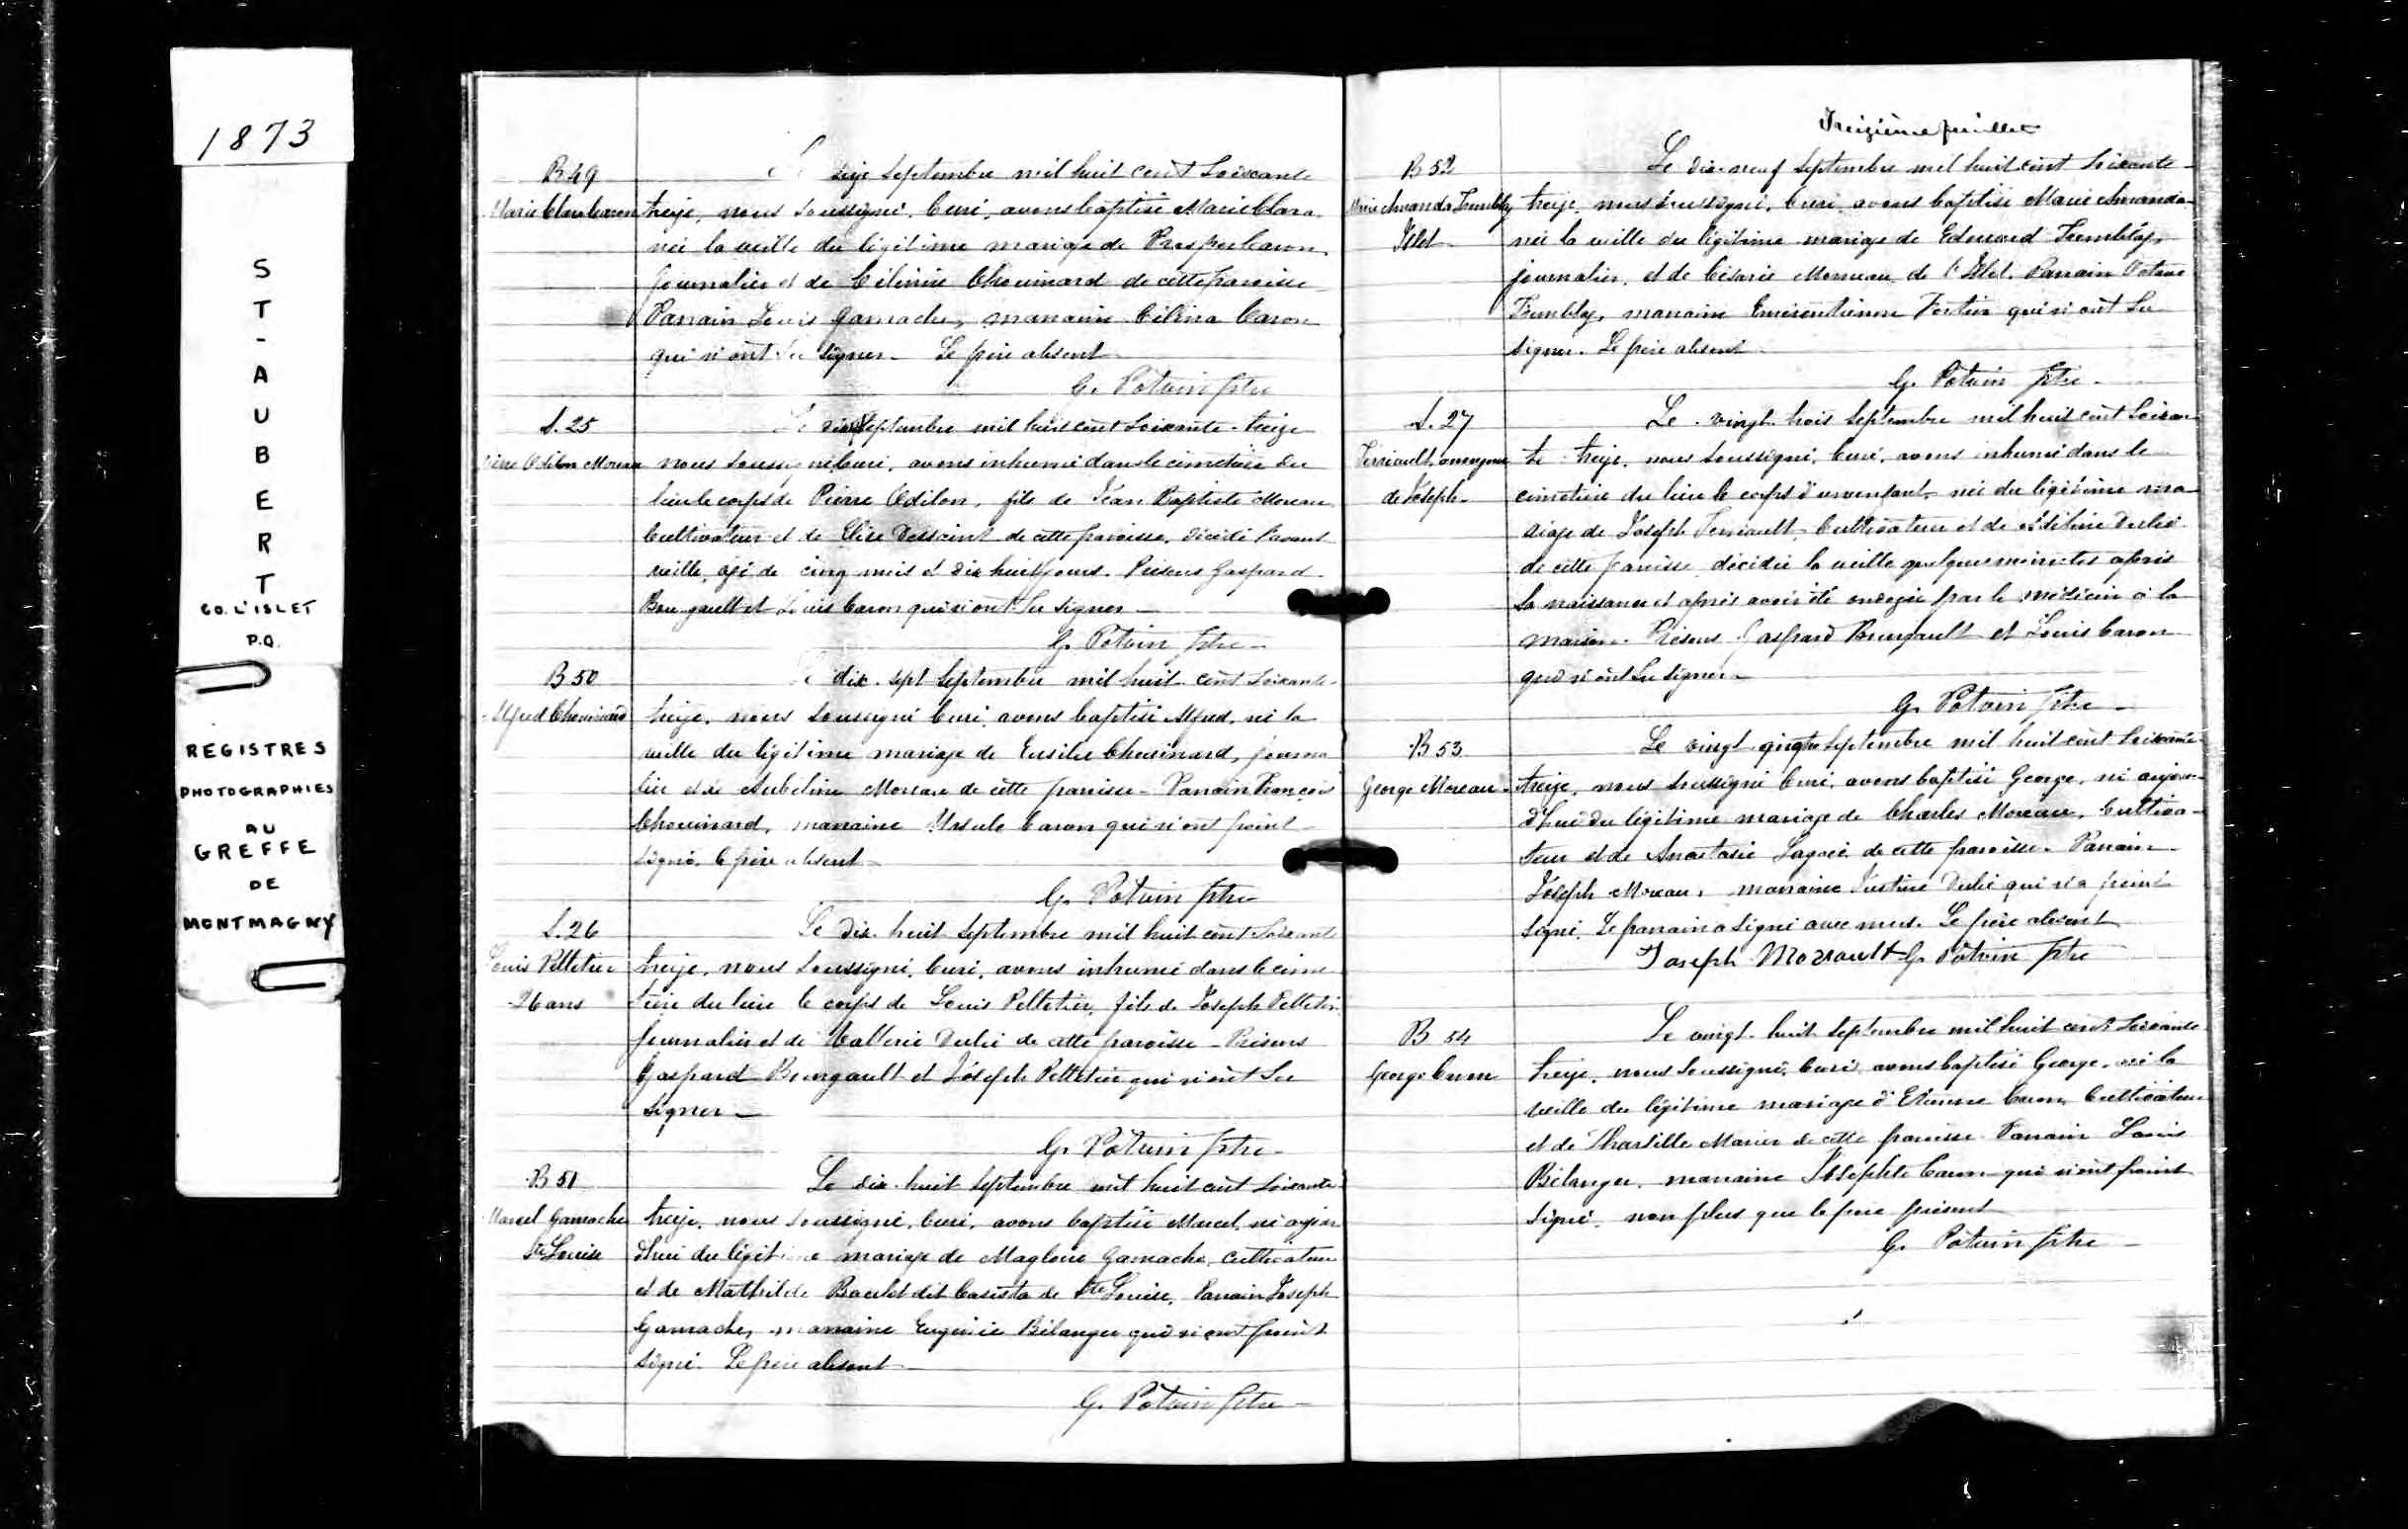 1873
ST-AUBERT
CO. L'ISLET
P.Q.
REGISTRES
PHOTOGRAPHIES
AU
GREFFE
DE
MONTMAGNY
B 49
Marie Clara Caron
Le seize Septembre mil huit cent Soixante
treize, nous soussigné, Curé, avons baptisé Marie Clara
née la veille du légitime mariage de Prosper Caron
journalier et de Célinire Chouinard de cette paroisse
Parrain Louis Gamache, marraine Célina Caron
qui n'ont su signer. Le père absent
G. Potvin ptre
S. 25
Pierre Odilon Moreau
Le Septembre mil huit cent soixante-treize
nous soussigné Curé, avons inhumé dans le cimetière du
lieu le corps de Pierre Odilon, fils de Jean Baptiste Moreau
Cultivateur et de Elise Dessaint de cette paroisse, décédé l'avant
veille, agé de cinq mois et dix huit jours. Présens Gaspard
Bourgault et Louis Caron qui n'ont su signer
G. Potvin ptre
B 50
Alfred Chouinard
Le dix-sept Septembre mil huit cent soixante
treize, nous soussigné Curé, avons baptisé Alfred, né la
veille du légitime mariage de Eusèbe Chouinard, journa
lier et de Aubeline Moreau de cette paroisse - Parrain François
Chouinard, marraine Ursule Caron qui n'ont point
signé. le père absent
G. Potvin ptre
S. 26
Louis Pelletier
26 ans
Le dix-huit Septembre mil huit cent soixante
treize, nous soussigné, Curé, avons inhumé dans le cime
tière du lieu le corps de Louis Pelletier, fils de Joseph Pelletier
journalier et de Vallerie Dubé de cette paroisse - Présens
Gaspard Bourgault et Joseph Pelletier qui n'ont su
signer
G. Potvin ptre
B 51
Marcel Gamache
Ste Louise
Le dix-huit Septembre mil huit cent soixante
treize, nous soussigné, Curé, avons baptisé Marcel, né aujour
d'hui du légitime mariage de Magloire Gamache, cultivateur
et de Mathilde dit de Ste Louise, Parrain Joseph
Gamache, marraine Eugénie Bélanger qui n'ont point
signé. Le père absent
G. Potvin ptre
Treizième feuillet
B 52
Marie Amanda Trembley
Islet
Le dix-neuf Septembre mil huit cent soixante
treize, nous soussigné, Curé, avons baptisé Marie Amanda
née la veille du légitime mariage de Edouard Trembley,
journalier, et de Césarie Morneau de l'Islet. Parrain Octave
Trembley, marraine Emérentienne Fortin qui n'ont su
signer. Le père absent
G. Potvin ptre
S. 27
Terriault, anonyme
de Joseph
Le vingt-trois Septembre mil huit cent soixan
te treize, nous soussigné, Curé, avons inhumé dans le
cimetière du lieu le corps d'un enfant, né du légitime ma
riage de Joseph Terriault, Cultivateur et de Dubé
de cette paroisse, décédée la veille quelques minutes après
sa naissance et après avoir été ondoyée par le médecin à la
maison. Présens Gaspard Bourgault et Louis Caron
qui n'ont su signer
G. Potvin ptre
B 53
George Moreau
Le vingt Septembre mil huit cent soixante
treize, nous soussigné Curé, avons baptisé George, né aujour
d'hui du légitime mariage de Charles Moreau, Cultiva-
teur et de Anastasie Gagné de cette paroisse. Parrain
Joseph Moreau, marraine Justine Dubé qui n'a point
signé. Le parrain a signé avec nous. Le père absent
Joseph Morault G. Potvin ptre
B 54
George Caron
Le vingt-huit Septembre mil huit cent soixante
treize, nous soussigné, Curé, avons baptisé George, né la
veille du légitime mariage d'Etienne Caron, Cultivateur
et de Tharsille Marier de cette paroisse. Parrain Louis
Bélanger, marraine Josephte Caron qui n'ont point
signé, non plus que le père présent
G. Potvin ptre